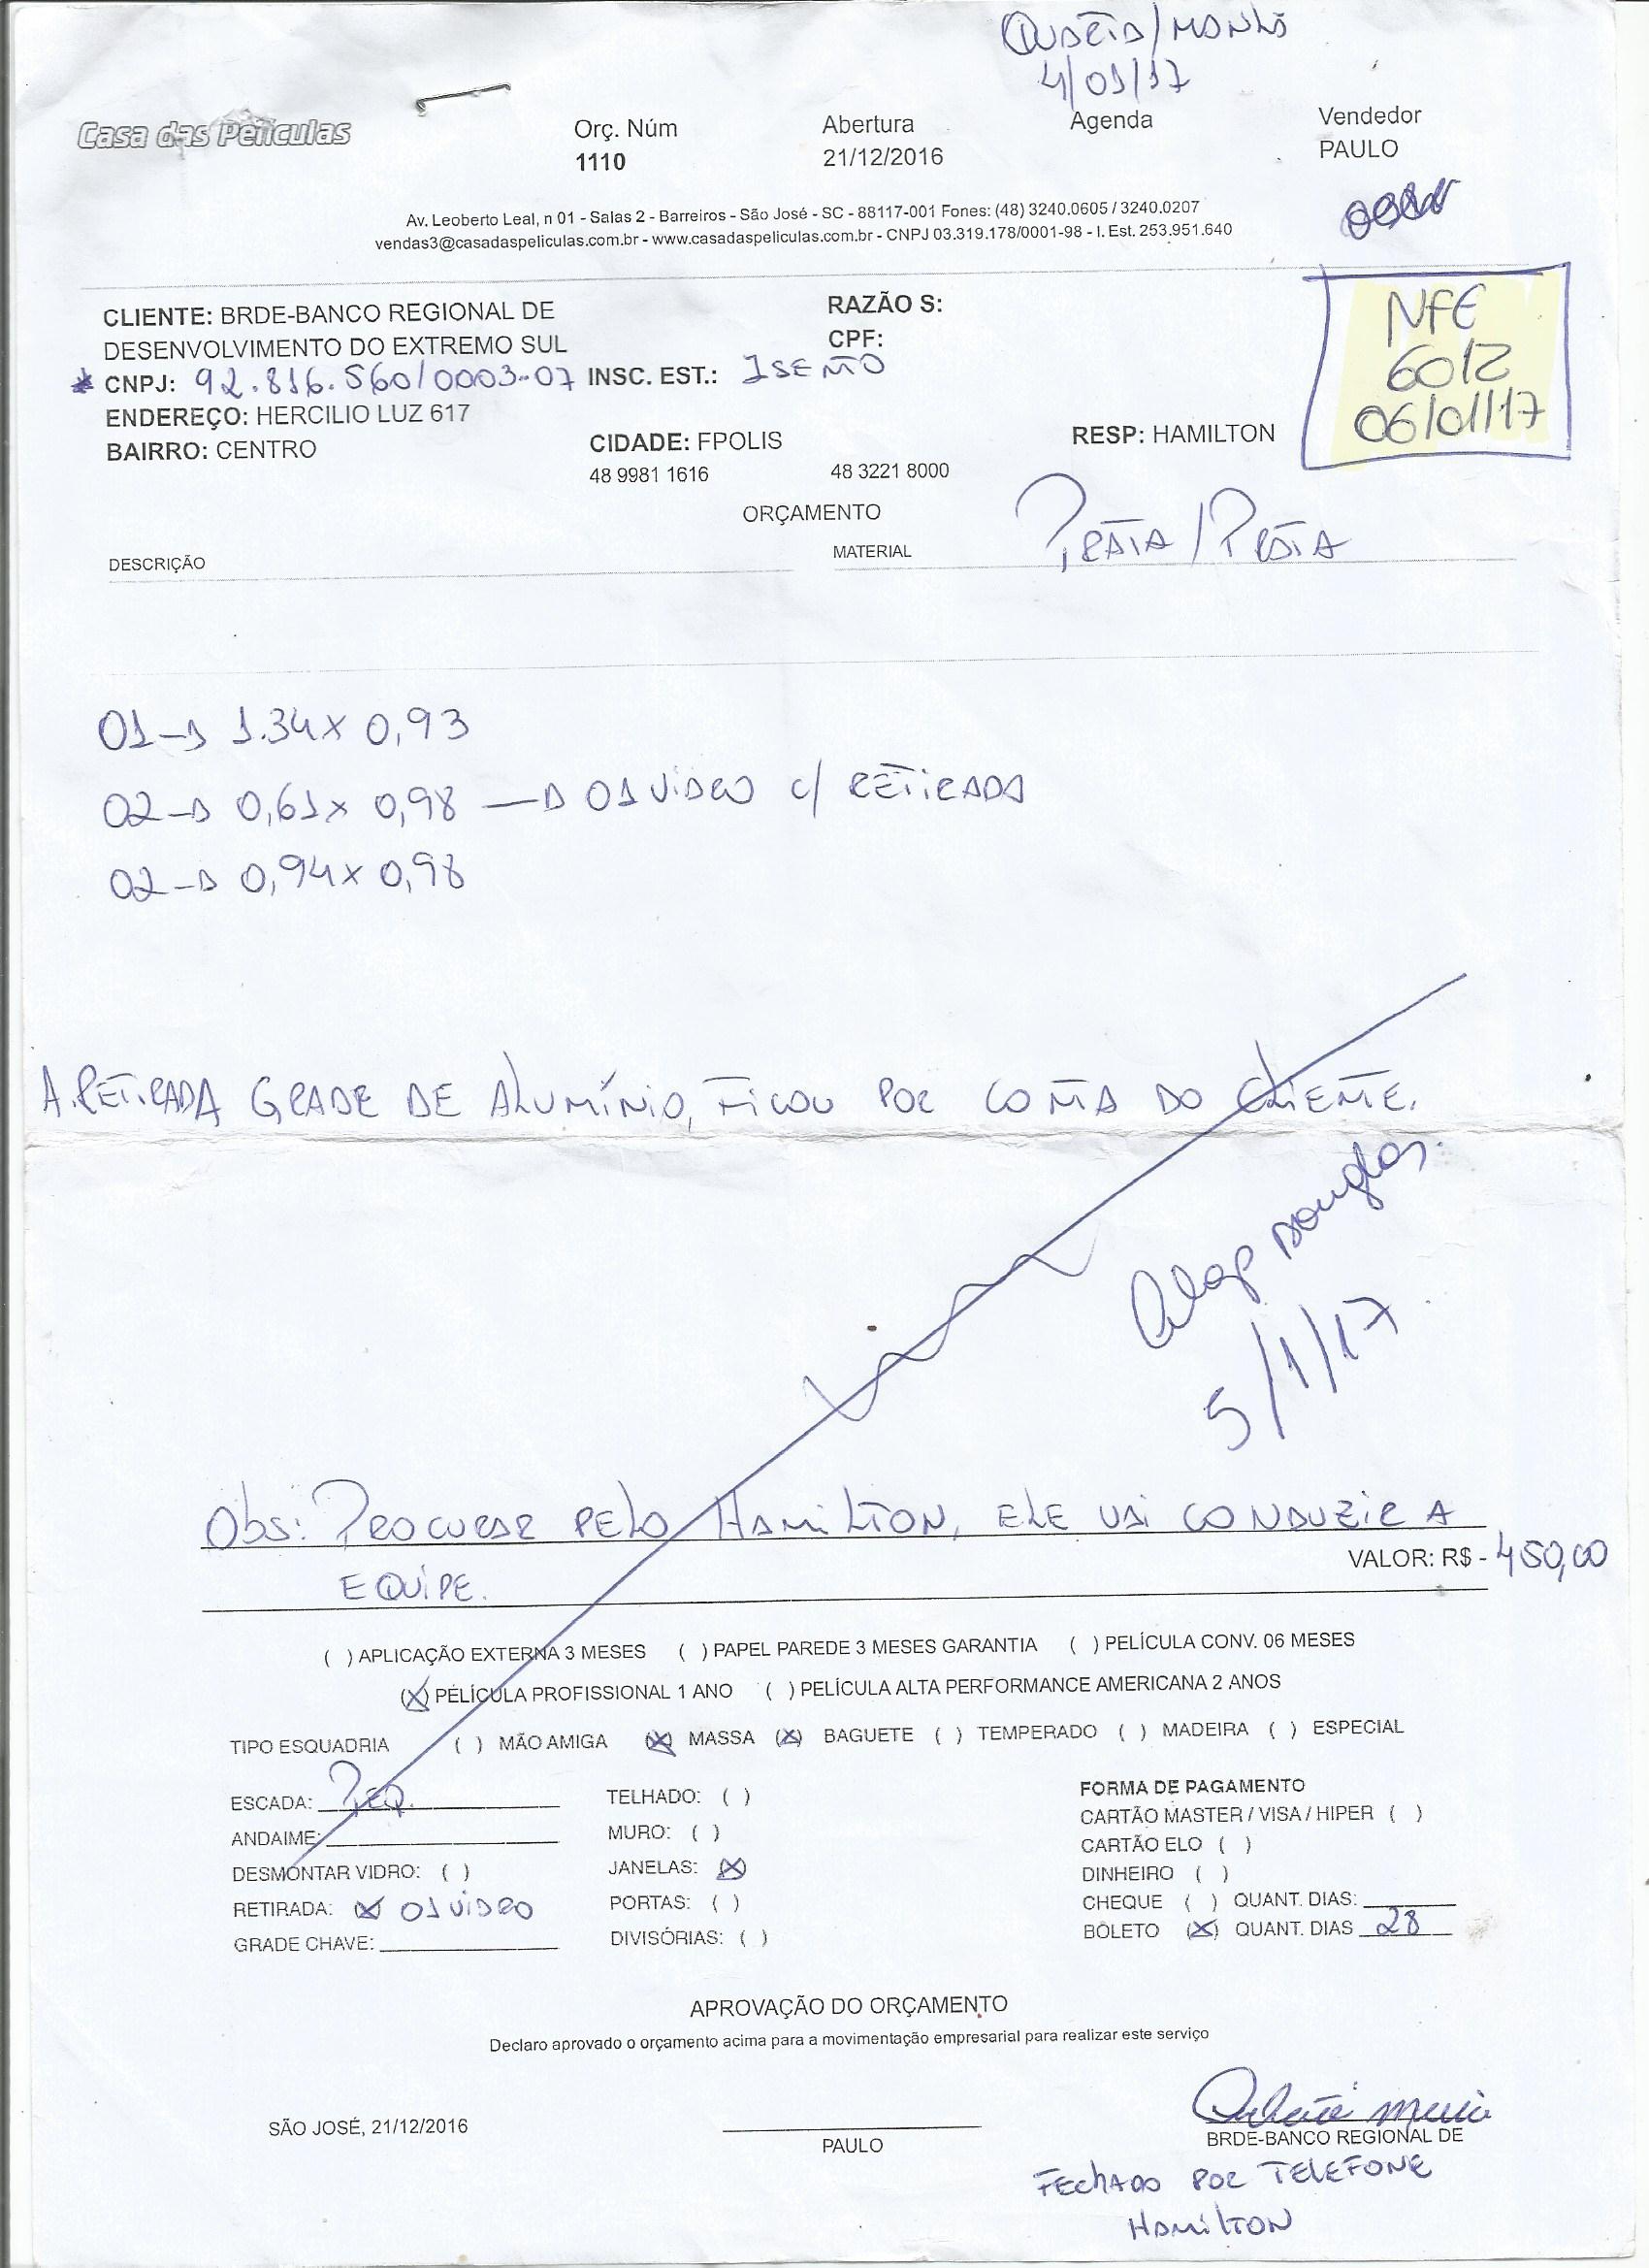 QUARTA/MANHÃ
4/01/17
Casa das Películas
Orç. Núm
1110
Abertura
21/12/2016
Agenda
Vendedor
PAULO
Av. Leoberto Leal, n 01 - Salas 2 - Barreiros - São José - SC - 88117-001 Fones: (48) 3240.0605 / 3240.0207
vendas3@casadaspeliculas.com.br - www.casadaspeliculas.com.br - CNPJ 03.319.178/0001-98 - I. Est. 253.951.640
NFE
6012
06/01/17
CLIENTE: BRDE-BANCO REGIONAL DE
DESENVOLVIMENTO DO EXTREMO SUL
RAZÃO S:
CPF:
* CNPJ: 92.816.560/0003-07 INSC. EST.: ISENTO
ENDEREÇO: HERCILIO LUZ 617
BAIRRO: CENTRO
CIDADE: FPOLIS
RESP: HAMILTON
48 9981 1616 48 3221 8000
ORÇAMENTO
DESCRIÇÃO
MATERIAL PRATA/PRATA
01 → 1.34 x 0,93
02 → 0,61 x 0,98 → 01 VIDRO c/ RETIRADA
02 → 0,94 x 0,98
A RETIRADA GRADE DE ALUMÍNIO, FICOU POR CONTA DO CLIENTE.
Douglas.
5/1/17
Obs: PROCURAR PELO HAMILTON, ELE VAI CONDUZIR A
EQUIPE.
VALOR: R$ - 450,00
( ) APLICAÇÃO EXTERNA 3 MESES ( ) PAPEL PAREDE 3 MESES GARANTIA ( ) PELÍCULA CONV. 06 MESES
(X) PELÍCULA PROFISSIONAL 1 ANO ( ) PELÍCULA ALTA PERFORMANCE AMERICANA 2 ANOS
TIPO ESQUADRIA ( ) MÃO AMIGA (X) MASSA (X) BAGUETE ( ) TEMPERADO ( ) MADEIRA ( ) ESPECIAL
ESCADA: PEQ.
ANDAIME:
DESMONTAR VIDRO: ( )
RETIRADA: (X) 01 VIDRO
GRADE CHAVE:
TELHADO: ( )
MURO: ( )
JANELAS: (X)
PORTAS: ( )
DIVISÓRIAS: ( )
FORMA DE PAGAMENTO
CARTÃO MASTER / VISA / HIPER ( )
CARTÃO ELO ( )
DINHEIRO ( )
CHEQUE ( ) QUANT. DIAS:
BOLETO (X) QUANT. DIAS 28
APROVAÇÃO DO ORÇAMENTO
Declaro aprovado o orçamento acima para a movimentação empresarial para realizar este serviço
SÃO JOSÉ, 21/12/2016
PAULO
BRDE-BANCO REGIONAL DE
FECHADO POR TELEFONE
HAMILTON